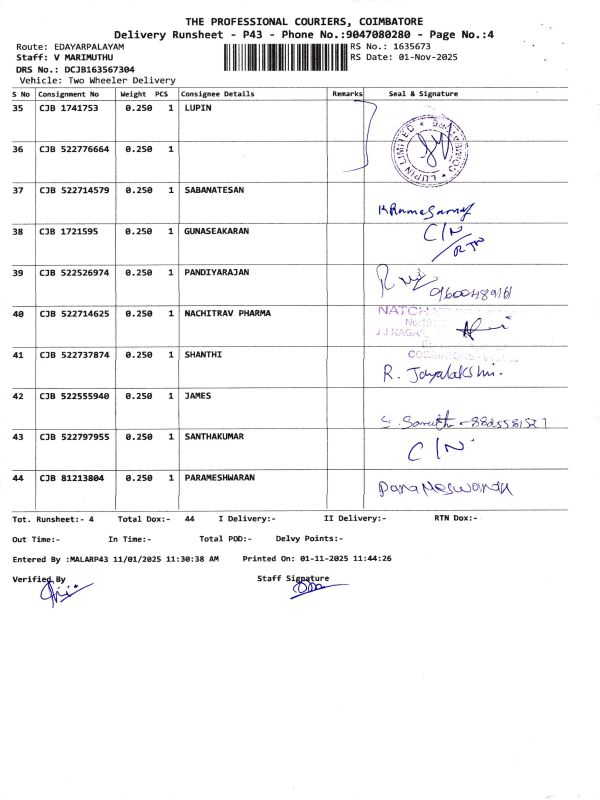 THE PROFESSIONAL COURIERS, COIMBATORE
Delivery Runsheet - P43 - Phone No.:9047080280 - Page No.:4
Route: EDAYARPALAYAM RS No.: 1635673
Staff: V MARIMUTHU RS Date: 01-Nov-2025
DRS No.: DCJB163567304
Vehicle: Two Wheeler Delivery
S No Consignment No Weight PCS Consignee Details Remarks Seal & Signature
35 CJB 1741753 0.250 1 LUPIN
LUPIN LIMITED
36 CJB 522776664 0.250 1
37 CJB 522714579 0.250 1 SABANATESAN
38 CJB 1721595 0.250 1 GUNASEAKARAN C/N
39 CJB 522526974 0.250 1 PANDIYARAJAN
40 CJB 522714625 0.250 1 NACHITRAV PHARMA
J J NAGAR
41 CJB 522737874 0.250 1 SHANTHI
R. Jayalakshmi.
42 CJB 522555940 0.250 1 JAMES
43 CJB 522797955 0.250 1 SANTHAKUMAR C/N
44 CJB 81213804 0.250 1 PARAMESHWARAN
Tot. Runsheet:- 4 Total Dox:- 44 I Delivery:- II Delivery:- RTN Dox:-
Out Time:- In Time:- Total POD:- Delvy Points:-
Entered By :MALARP43 11/01/2025 11:30:38 AM Printed On: 01-11-2025 11:44:26
Verified By Staff Signature